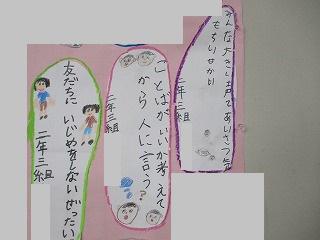 みんな大きい声であいさつ気
もちいせかい
二年三組
ことばがいいか考えて
から人に言う?
二年三組
友だちに いじめをしないぜったい
二年三組